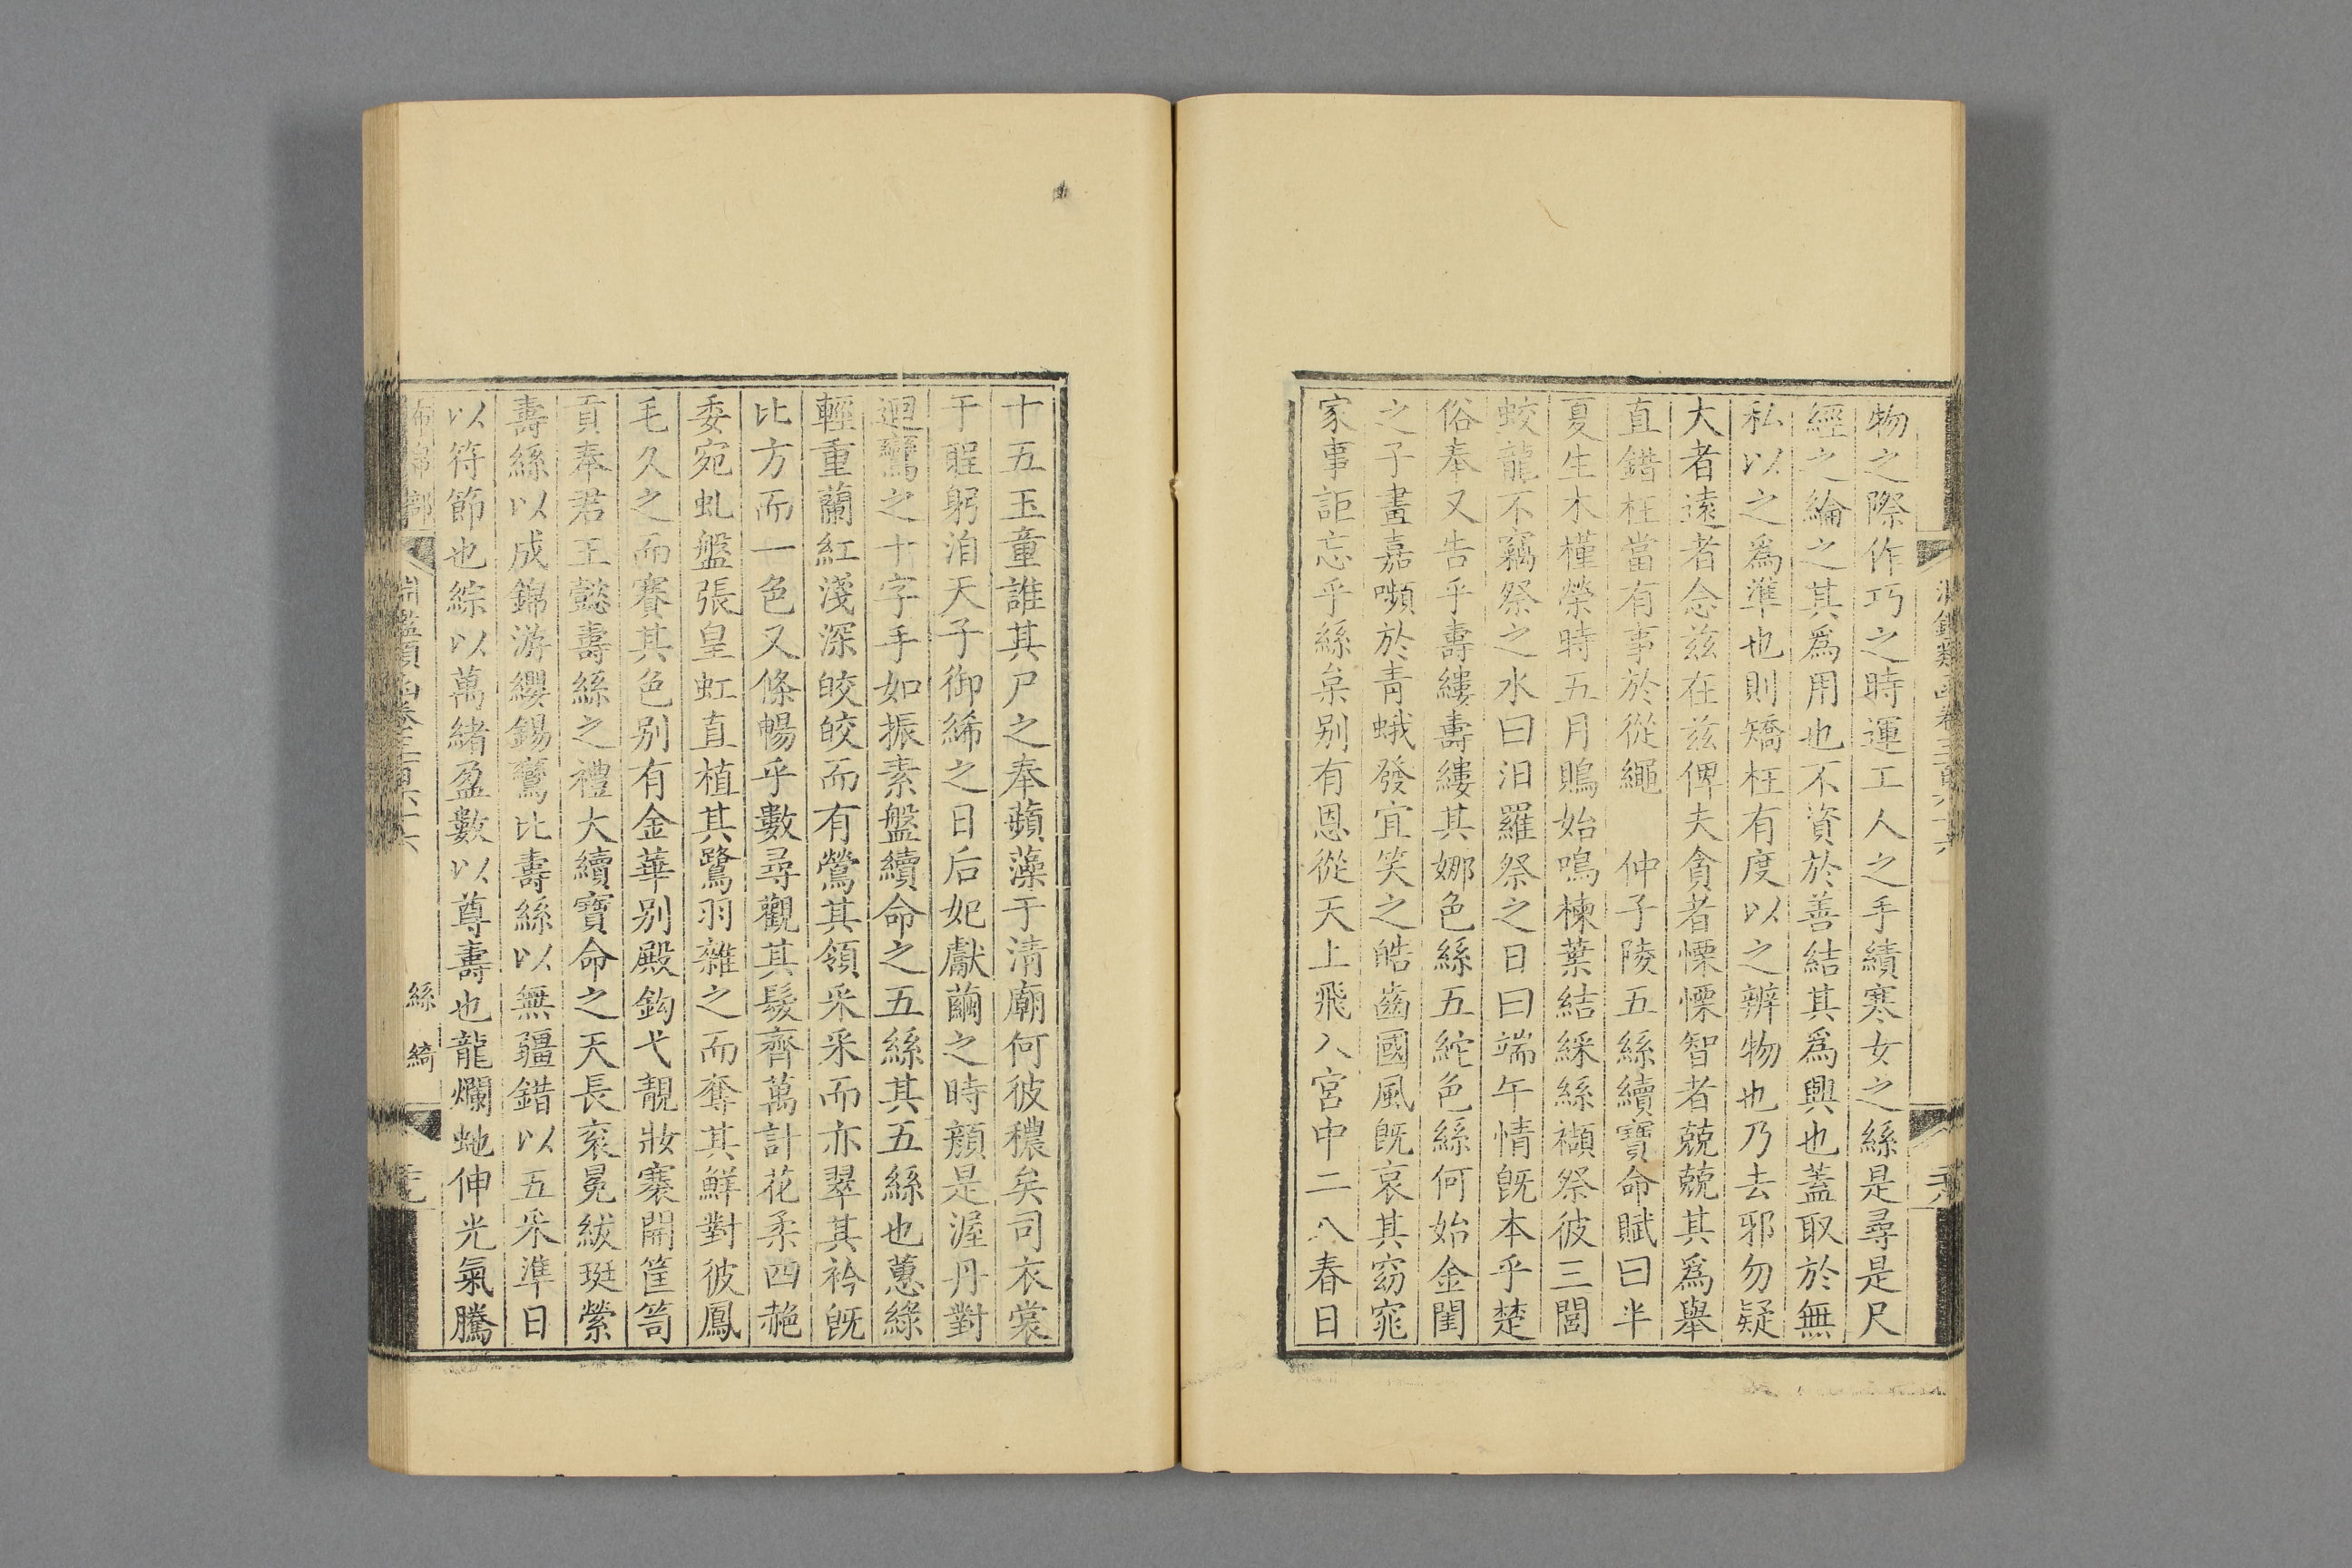 物之際作巧之時運工人之手績寒女之絲是尋是尺
經之綸之其爲用也不資於善結其爲興也蓋取於無
私以之爲準也則矯枉有度以之辨物也乃去邪勿疑
大者遠者念兹在兹俾夫貪者慄慄智者兢兢其爲舉
直錯枉當有事於從繩　仲子陵五絲續寶命賦曰半
夏生木槿榮時五月鵙始鳴楝葉結綵絲襭祭彼三閭
蛟龍不竊祭之水曰汨羅祭之日曰端午情旣本乎楚
俗奉又告乎壽縷壽縷其娜色絲五紽色絲何始金閨
之子畫嘉嚬於青蛾發宜笑之皓齒國風旣哀其窈窕
家事詎忘乎絲枲别有恩從天上飛入宮中二八春日
十五玉童誰其尸之奉蘋藻于清廟何彼穠矣司衣裳
于躬洎天子御絺之日后妃獻繭之時顔是渥丹對
迴鸞之十字手如振素盤續命之五絲其五絲也蕙綠
輕重蘭紅淺深皎皎而有鶯其領采采而亦翠其衿旣
比方而一色又條暢乎數尋觀其髮齊萬計花柔四赩
委宛虬盤張皇虹直植其鷺羽雜之而奪其鮮對彼鳳
毛久之而賽其色别有金華别殿鈎弋靚妝褰開筐笥
貢奉君王懿壽絲之禮大續寶命之天長衮冕紱珽縈
壽絲以成錦游纓錫鸞比壽絲以無疆錯以五采準日
以符節也綜以萬緒盈數以尊壽也龍爛虵伸光氣騰
布帛部
淵鑑類函卷三百六十六
絲　綺